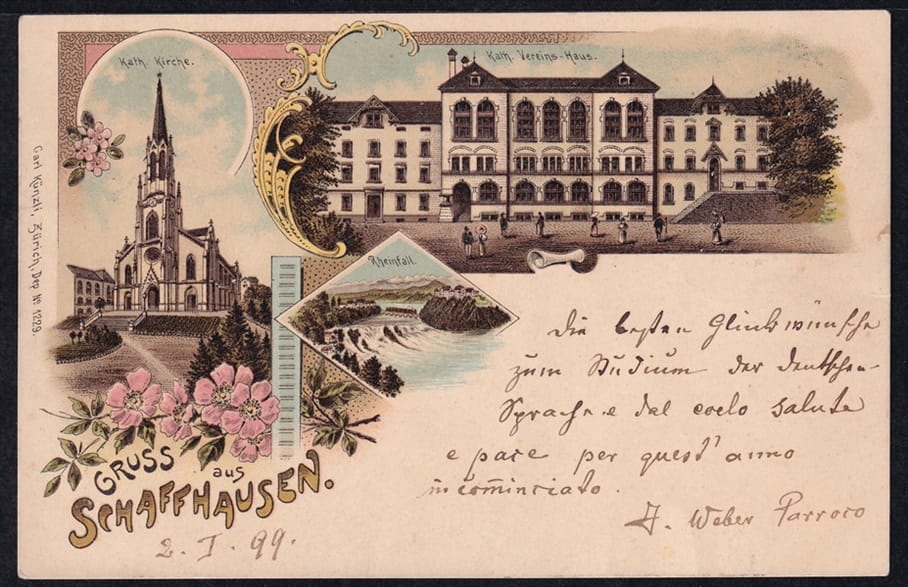 Kath. Kirche.
Kath. Vereins-Haus.
Carl Künzli, Zürich, Dep. No 1229.
Rheinfall.
Die besten Glückwünsche
zum Studium der deutschen
Sprache e dal coelo salute
e pace per quest' anno
incominciato.
J. Weber Parroco
GRUSS
aus
SCHAFFHAUSEN.
2. I. 99.